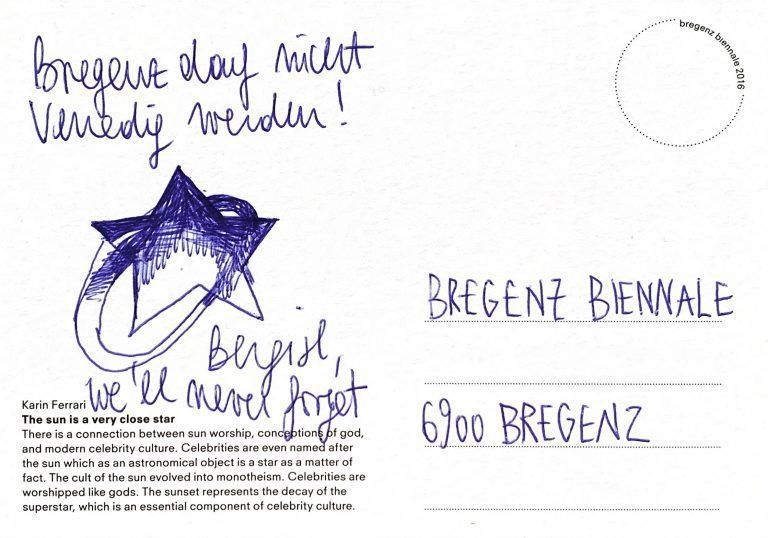 Bregenz darf nicht
Venedig werden!
bregenz biennale 2016
Bergisl,
we'll never forget
BREGENZ BIENNALE
6900 BREGENZ
Karin Ferrari
The sun is a very close star
There is a connection between sun worship, conceptions of god,
and modern celebrity culture. Celebrities are even named after
the sun which as an astronomical object is a star as a matter of
fact. The cult of the sun evolved into monotheism. Celebrities are
worshipped like gods. The sunset represents the decay of the
superstar, which is an essential component of celebrity culture.